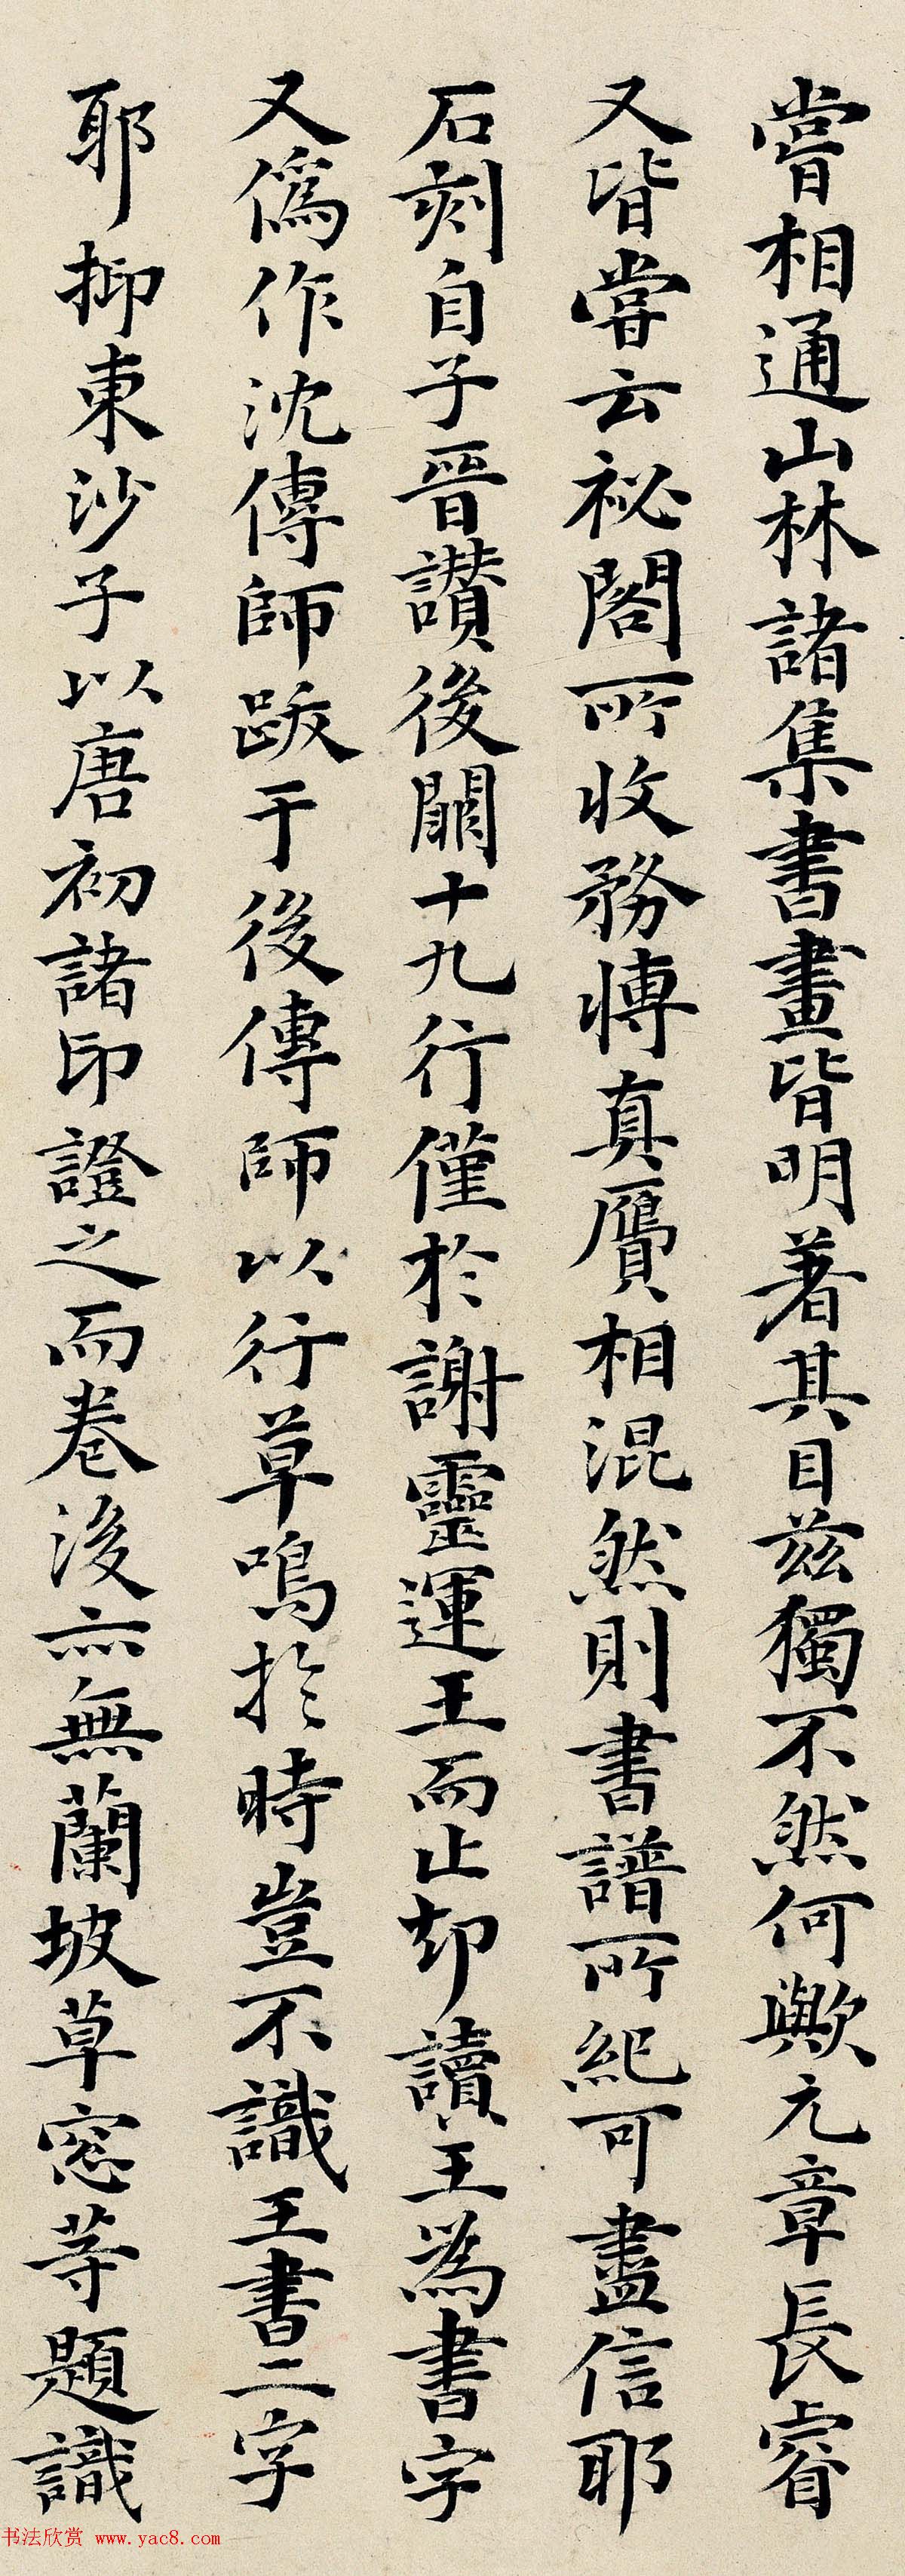 嘗相通山林諸集書畫皆明著其目茲獨不然何歟元章長睿
又皆嘗云祕閣所收務博真贗相混然則書譜所紀可盡信耶
石刻自子晉讚後闕十九行僅於謝靈運王而止却讀王為書字
又偽作沈傳師跋于後傳師以行草鳴於時豈不識王書二字
耶抑東沙子以唐初諸印證之而卷後亦無蘭坡草窓等題識
书法欣赏 www.yac8.com